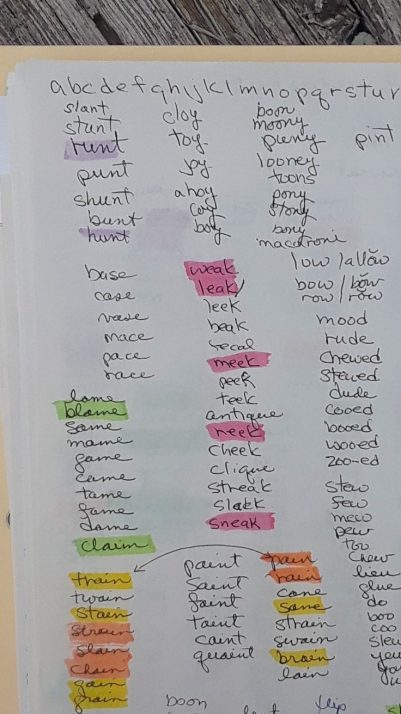 abcdefghijklmnopqrstuv
slant
stunt
runt
punt
shunt
bunt
hunt
cloy
toy
joy
ahoy
coy
boy
boon
moony
puny
looney
toons
pony
stony
bony
macaroni
pint
base
case
vase
mace
pace
race
weak
leak
leek
beak
fecal
meek
peek
teek
antique
reek
cheek
clique
streak
sneak
low / allow
bow / bow
row / row
mood
rude
chewed
stewed
dude
cooed
booed
wooed
zoo-ed
stew
few
mew
pew
too
chew
lieu
glue
do
boo
coo
slew
lame
blame
same
mame
game
came
tame
fame
dame
claim
train
twain
stain
slain
chain
gain
grain
paint
saint
faint
taint
caint
quaint
pain
rain
cane
sane
strain
swain
brain
lain
boon
flip